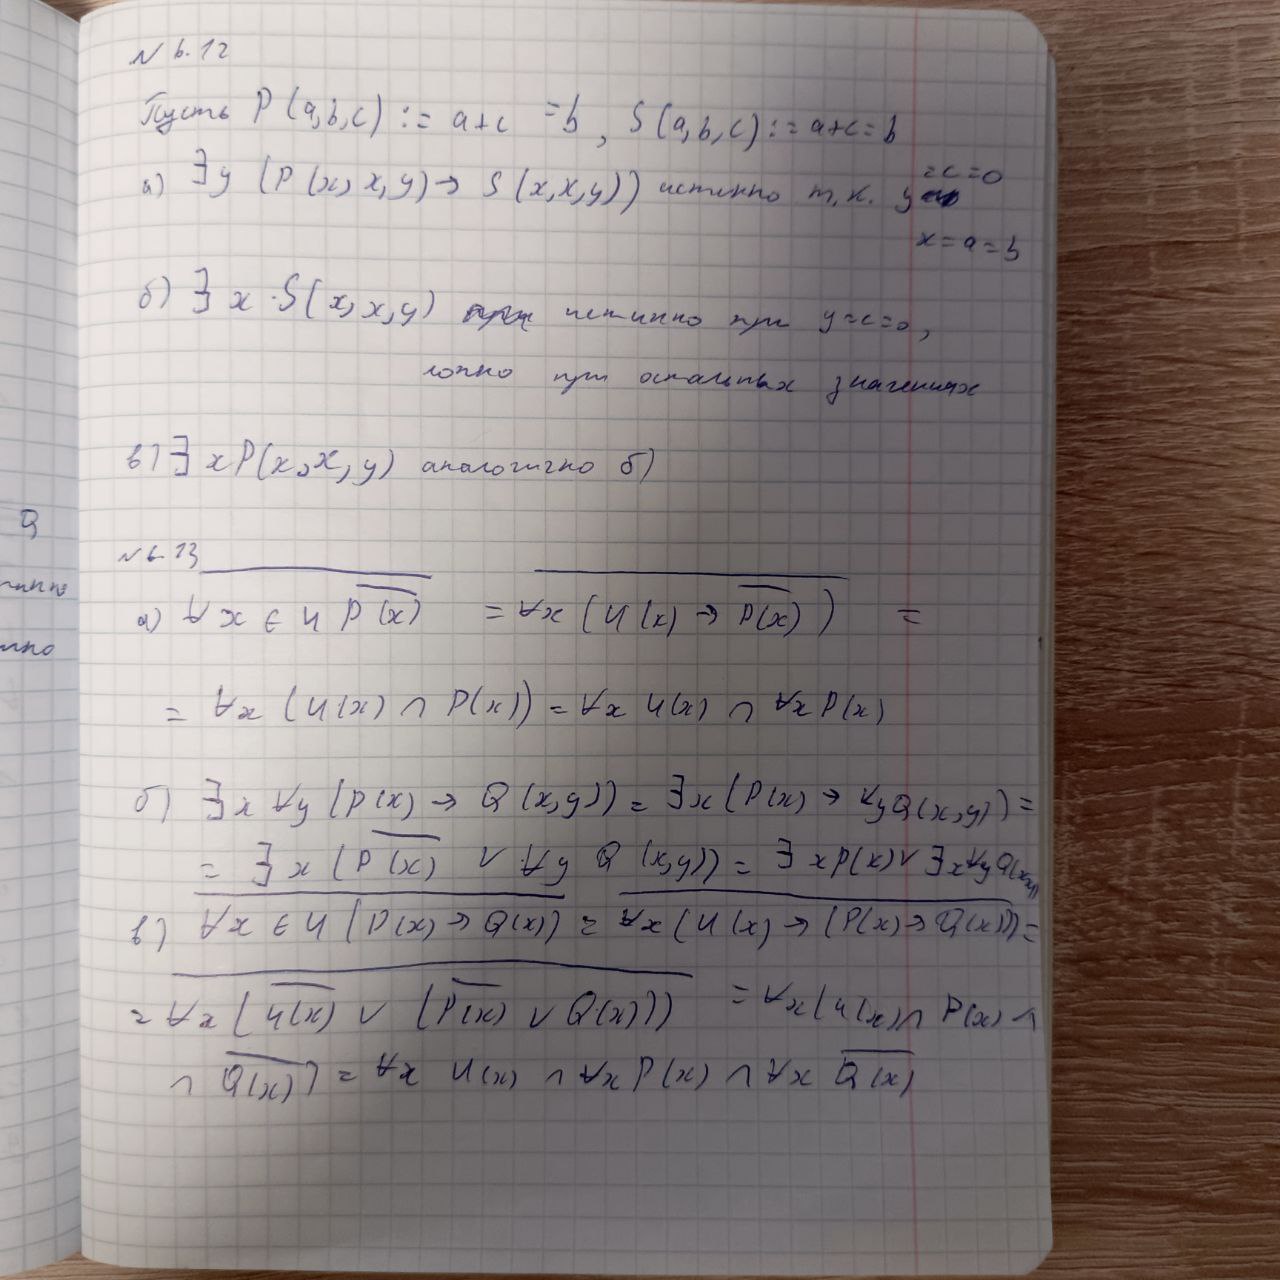 N 6.12
Пусть P(a,b,c) := a+c =b, S(a,b,c) := a+c=b
а) ∃y (P(x,x,y) → S(x,x,y)) истинно т.к. y =c=0
x=a=b
б) ∃x S(x,x,y) истинно при y=c=0,
ложно при остальных значениях
в) ∃xP(x,x,y) аналогично б)
N 6.13
а) \overline{∀x∈U \overline{P(x)}} = \overline{∀x(U(x) → \overline{P(x)})} =
= ∀x (U(x) ∩ P(x)) = ∀x U(x) ∩ ∀x P(x)
б) ∃x ∀y (P(x) → Q(x,y)) = ∃x(P(x) → ∀yQ(x,y)) =
= ∃x (\overline{P(x)} ∨ ∀y Q(x,y)) = ∃xP(x) ∨ ∃x∀yQ(x,y)
в) \overline{∀x∈U (P(x) → Q(x))} = \overline{∀x(U(x) → (P(x) → Q(x)))} =
= \overline{∀x(\overline{U(x)} ∨ (\overline{P(x)} ∨ Q(x)))} = ∀x(U(x) ∩ P(x) ∩
∩ \overline{Q(x)}) = ∀x U(x) ∩ ∀x P(x) ∩ ∀x \overline{Q(x)}